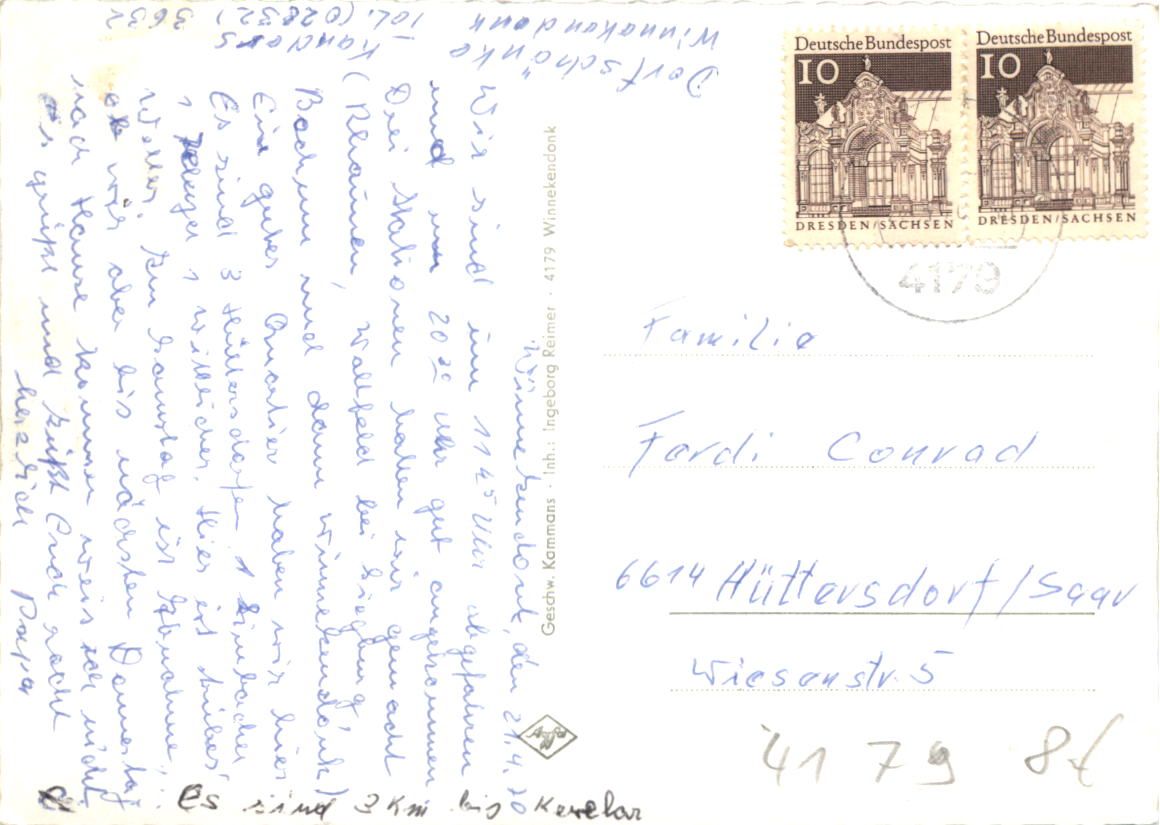 Dorfschänke
Winnekendonk
Kanders
Tel. (02832) 3632
Winnekendonk, den 21.4.70
Wir sind um 11 45 Uhr abgefahren
und um 20 30 Uhr gut angekommen
Drei Stationen haben wir gemacht
(Rhaunen, Wallfeld bei Siegburg,
Bochum und dann Winnekendonk)
Eine gutes Quartier haben wir hier
Es sind 3 Hüttersdorfer, 1 Limbacher
1 1 Willicher. Hier ist trübes,
Wetter. Am Samstag ist Abnahme,
ob wir aber bis nächsten Donnerstag
nach Hause kommen weis ich nicht.
Es grüßt und küßt Euch recht
herzlich Papa
Es sind 3 Km bis Kevelar
Geschw. Kammans · Inh.: Ingeborg Reimer · 4179 Winnekendonk
Agfa
Deutsche Bundespost
10
DRESDEN/SACHSEN
Deutsche Bundespost
10
DRESDEN/SACHSEN
4179
Familie
Ferdi Conrad
6614 Hüttersdorf/Saar
Wiesenstr. 5
4179 8€